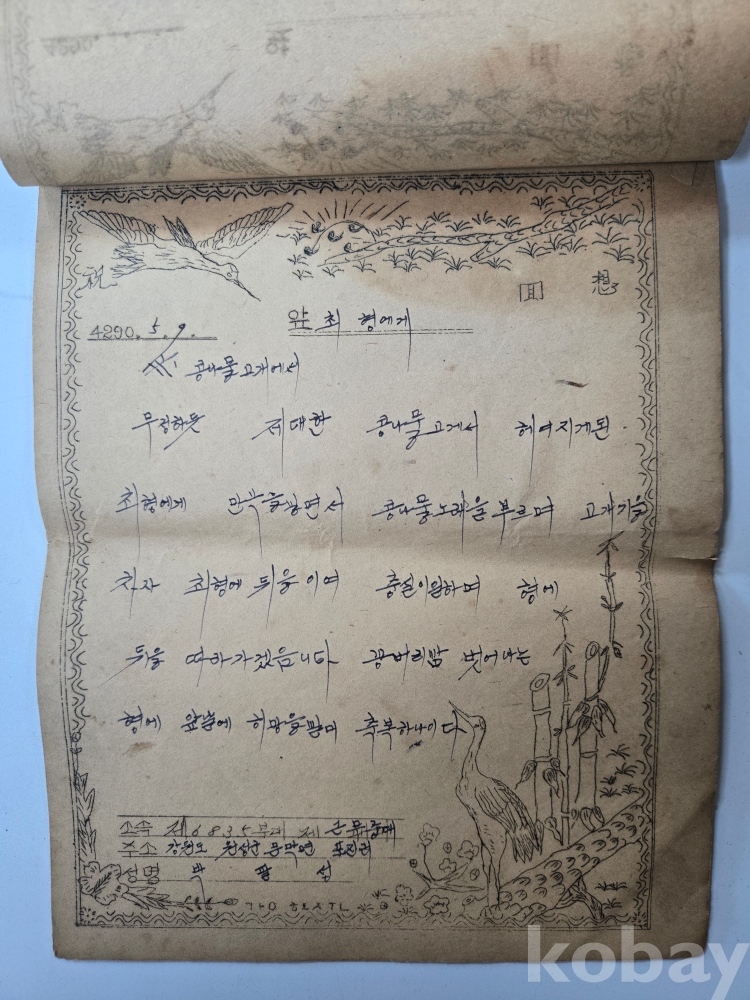 祝
回想
4290. 5. 9. 앞 최 형에게
콩나물고개에서
무정하듯 제대한 콩나물고게서 헤여지게된
최형에게 만복을빌면서 콩나물노래을부르며 고개길을
차자 최형에 뒤을이여 충실이일하며 형에
뒤을 따라가겠읍니다 꽁버리밥 벗어나는
형에 앞날에 히망을빌며 축복하나이다
소속 제6835부대 제 근무중대
주소 강원도 원성군 문막면
성명 박 성
kobay